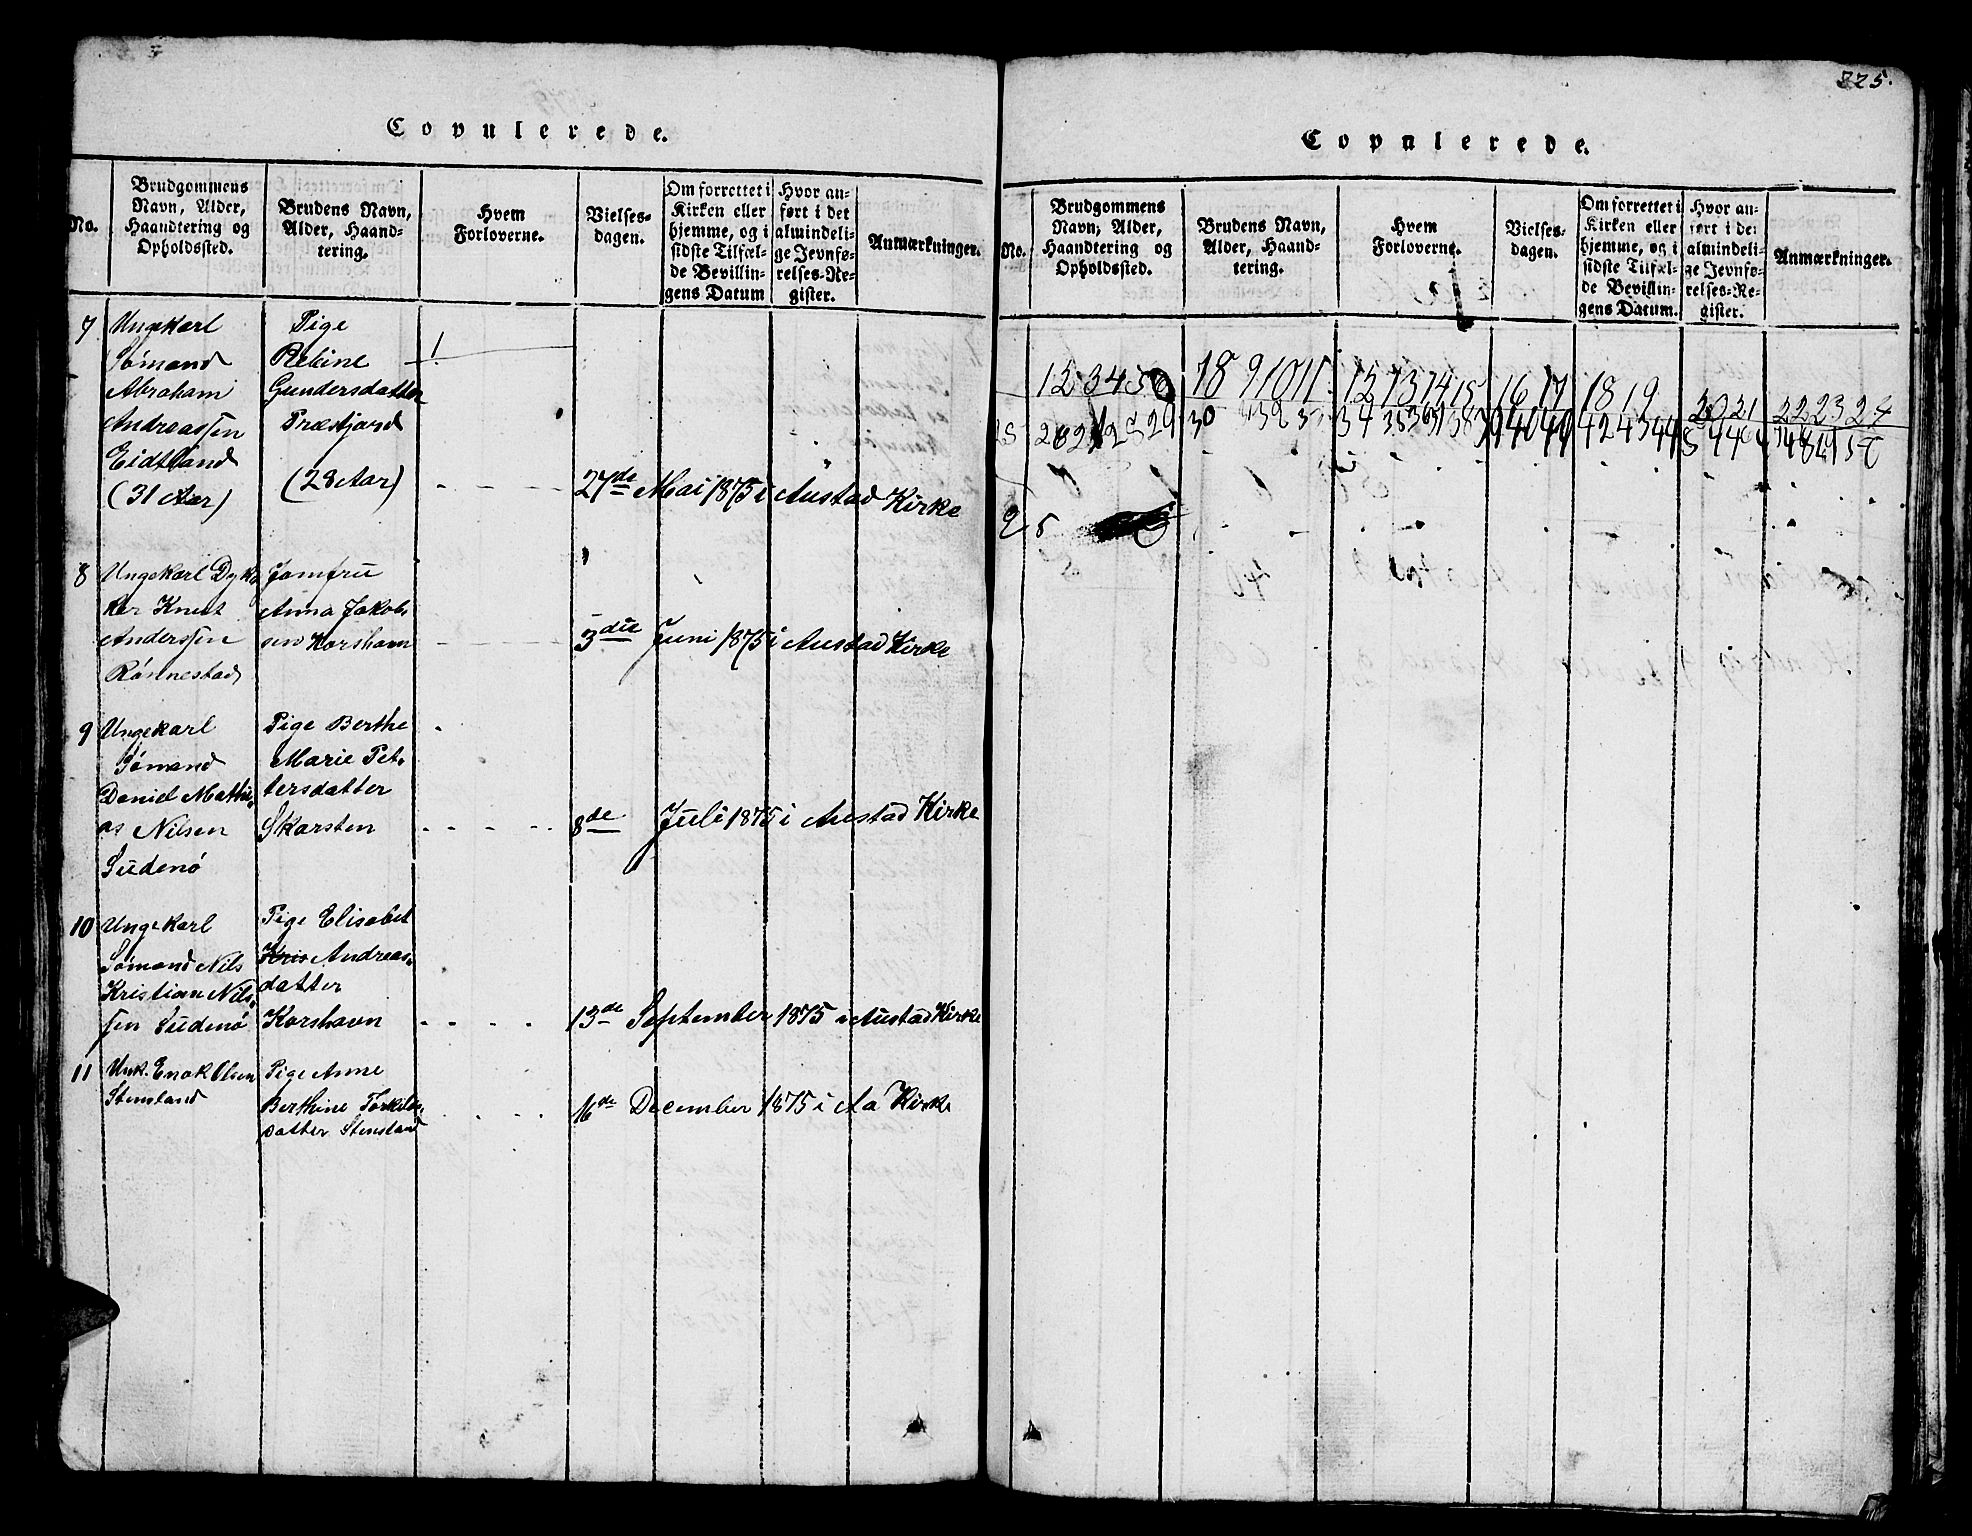 Copulerede.
No.
Brudgommens
Navn, Alder,
Haandtering og
Opholdssted.
Brudens Navn,
Alder, Haand-
tering.
Hvem
Forloverne.
Vielses-
dagen.
Om forrettet i
Kirken eller
hjemme, og i
sidste Tilfæl-
de Bevillin-
gens Datum
Hvor an-
ført i det
almindeli-
ge Jevnfø-
relses-Re-
gister.
Anmærkninger.
7
Ungekarl
Sømand
Abraham
Andreassen
Eidtland
(31 Aar)
Pige
Rebine
Gundersdatter
Præstfjord
(28 Aar)
27de Mai 1875 i Austad Kirke
8
Ungekarl Dyk-
ker Knut
Anderssen
Rønnestad
Jomfru
Anna Jakob-
sen Korshavn
3die Juni 1875 i Austad Kirke
9
Ungekarl
Sømand
Daniel Mathi-
as Nilsen
Südenø
Pige Berthe
Marie Pet-
tersdatter
Skarsten
8de Juli 1875 i Austad Kirke
10
Ungekarl
Sømand Nils
Kristian Nils-
sen Südenø
Pige Elisabet
Kris Andreas-
datter
Korshavn
13de September 1875 i Austad Kirke
11
Unk. Enok Olsen
Stensland
Pige Anne
Berthine Torkils-
datter Stensland
16de December 1875 i Aa Kirke
225.
Copulerede.
No.
Brudgommens
Navn, Alder,
Haandtering og
Opholdssted.
Brudens Navn,
Alder, Haand-
tering.
Hvem
Forloverne.
Vielses-
dagen.
Om forrettet i
Kirken eller
hjemme, og i
sidste Tilfæl-
de Bevillin-
gens Datum.
Hvor an-
ført i det
almindeli-
ge Jevnfø-
relses-Re-
gister.
Anmærkninger.
12 3 4 5 6 78 9 10 11 12 13 14 15 16 17 18 19 20 21 22 23 24